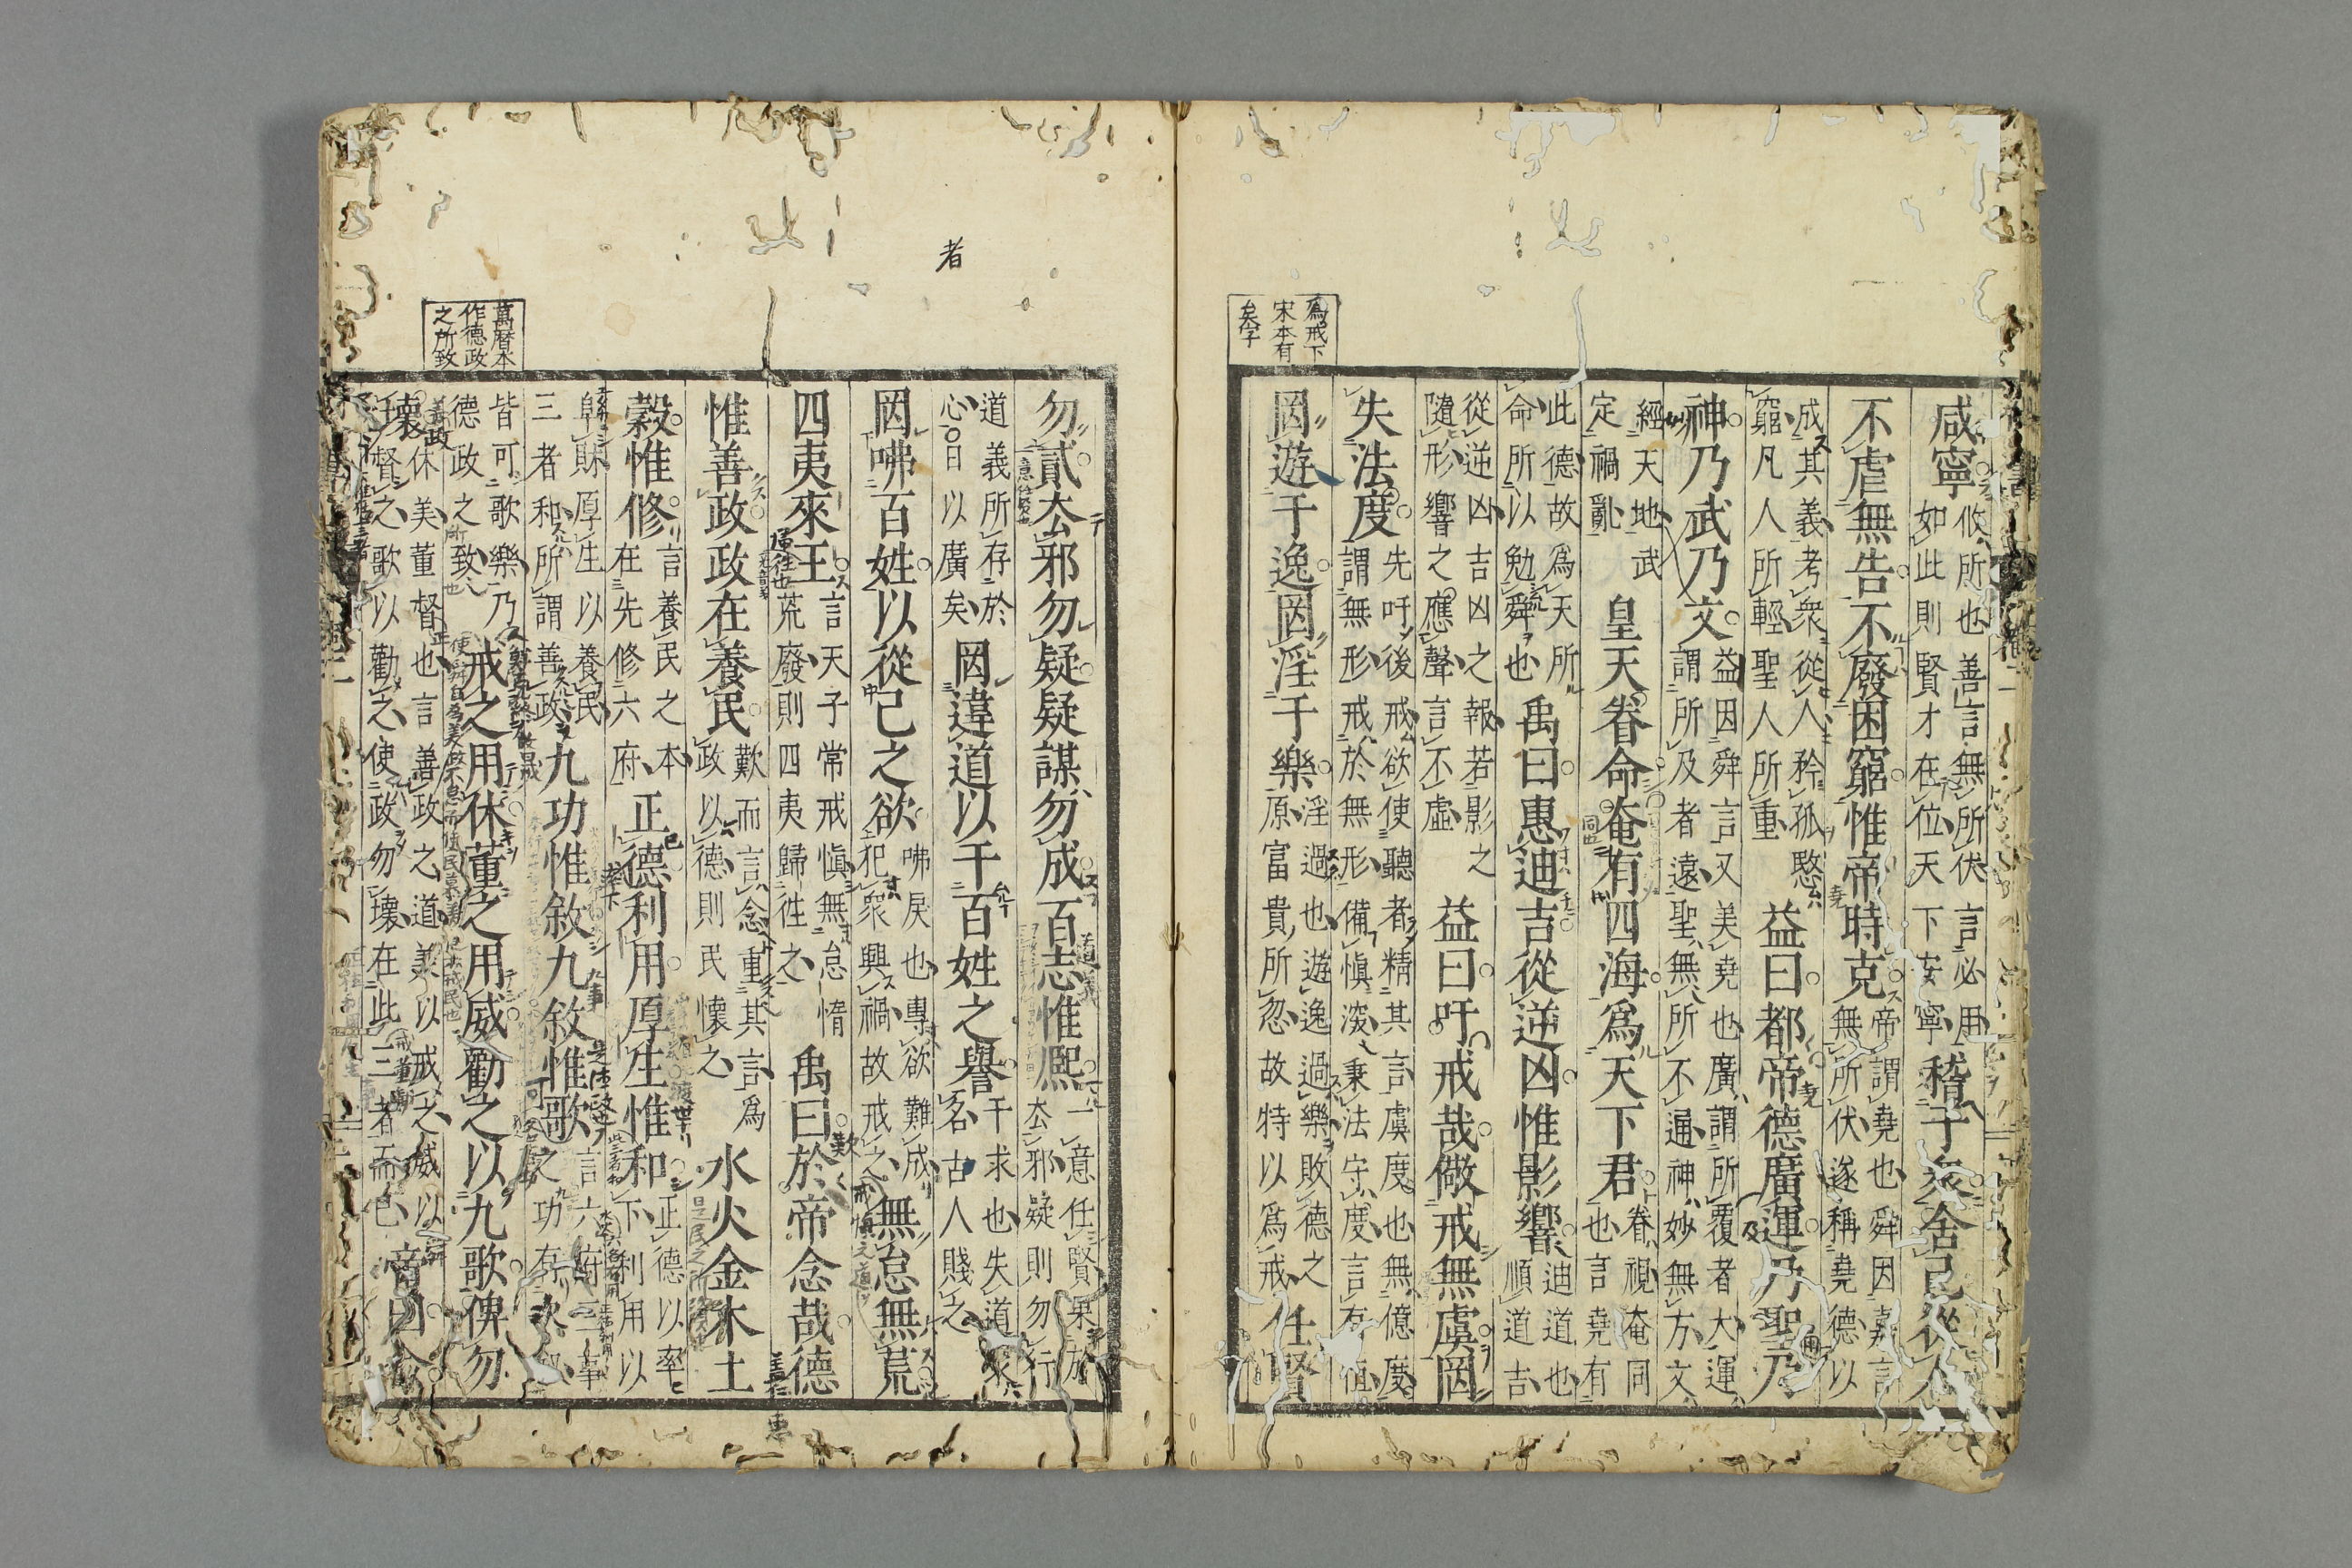 爲戒下
宋本有
矣字
咸寧攸所也善言無所伏言必用如此則賢才在位天下安寧稽于衆舍己從人
不虐無告不廢困窮惟帝時克帝謂堯也舜因嘉言無所伏遂稱堯德以
成其義考衆從人矜孤愍窮凡人所輕聖人所重益曰都帝德廣運乃聖乃
神乃武乃文益因舜言又美堯也廣謂所覆者大運謂所及者遠聖無所不通神妙無方文
經天地武定禍亂皇天眷命奄有四海爲天下君眷視奄同也言堯有
此德故爲天所命所以勉舜也禹曰惠迪吉從逆凶惟影響迪道也順道吉
從逆凶吉凶之報若影之隨形響之應聲言不虛益曰吁戒哉儆戒無虞罔
失法度先吁後戒欲使聽者精其言虞度也無億度謂無形戒於無形備慎深秉法守度言有恒
罔遊于逸罔淫于樂淫過也遊逸過樂敗德之原富貴所忽故特以爲戒任賢
者
萬曆本
作德政
之所致
勿貳去邪勿疑疑謀勿成百志惟熙一意任賢果於去邪疑則勿行
道義所存於心日以廣矣罔違道以干百姓之譽干求也失道求名古人賤之
罔咈百姓以從己之欲咈戾也專欲難成犯衆興禍故戒之無怠無荒
四夷來王言天子常戒慎無怠惰荒廢則四夷歸往之禹曰於帝念哉德
惟善政政在養民歎而言念重其言爲政以德則民懷之水火金木土
穀惟修言養民之本在先修六府正德利用厚生惟和正德以率下利用以
阜財厚生以養民三者和所謂善政九功惟敘九敘惟歌言六府三事之功有次敘
皆可歌樂乃德政之致戒之用休董之用威勸之以九歌俾勿
壞休美董督也言善政之道美以戒之威以督之歌以勸之使政勿壞在此三者而已帝曰兪